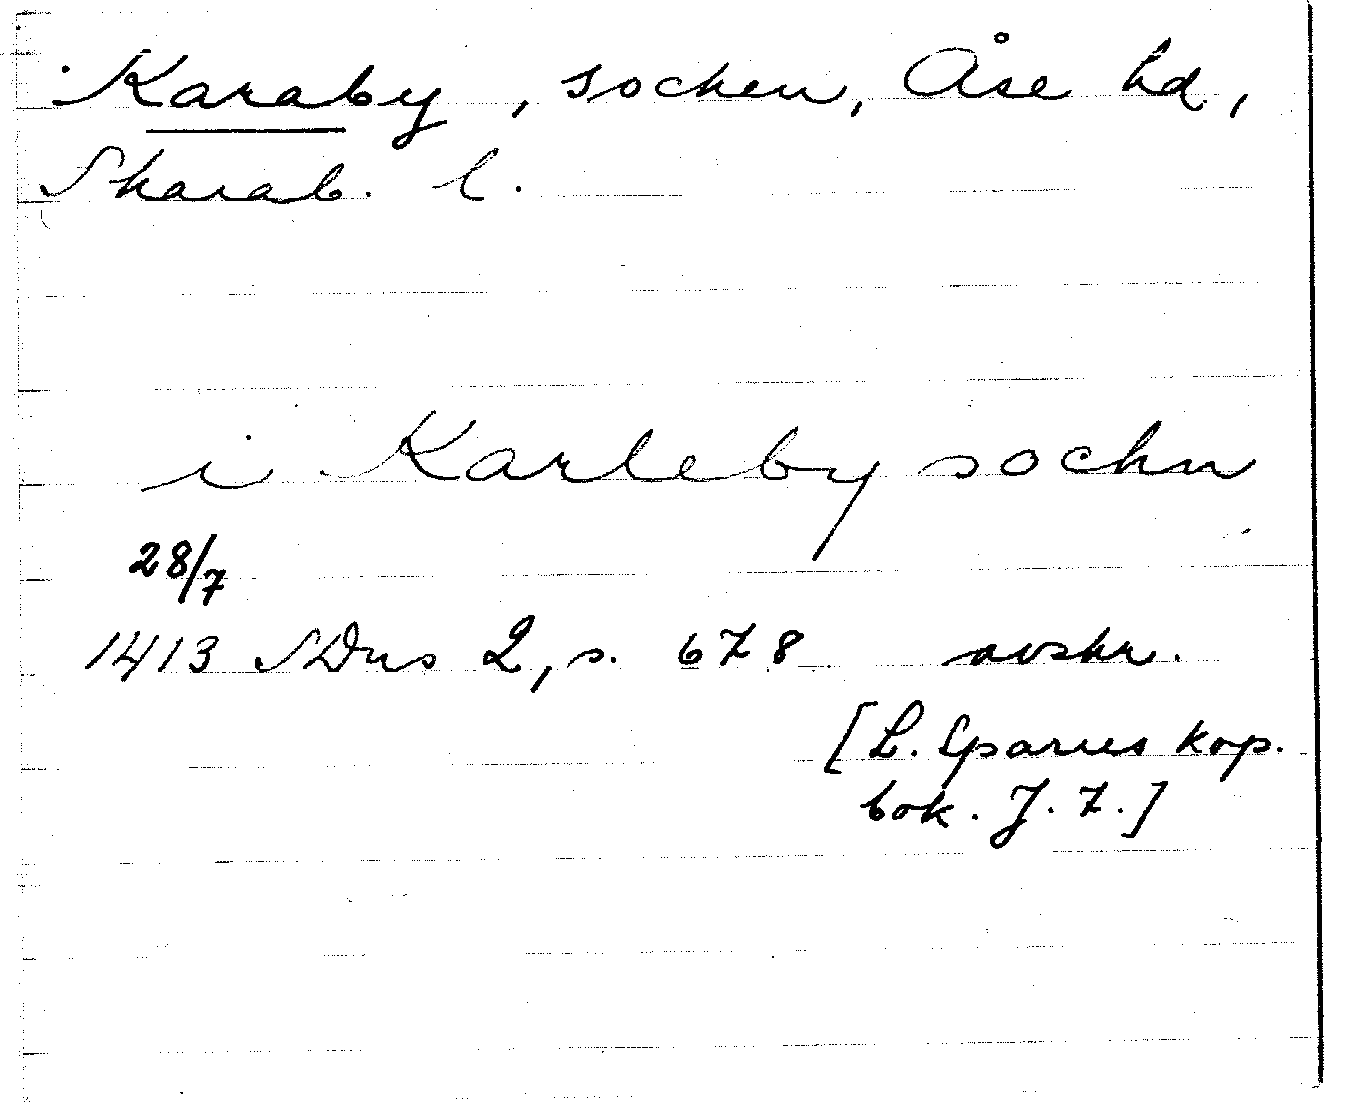 Karaby, socken, Åse hd,
Skarab. l.
i Karleby sochn
28/7
1413 SDns 2, s. 678 avskr.
[L. Sparres kop.
bok. J. 7.]